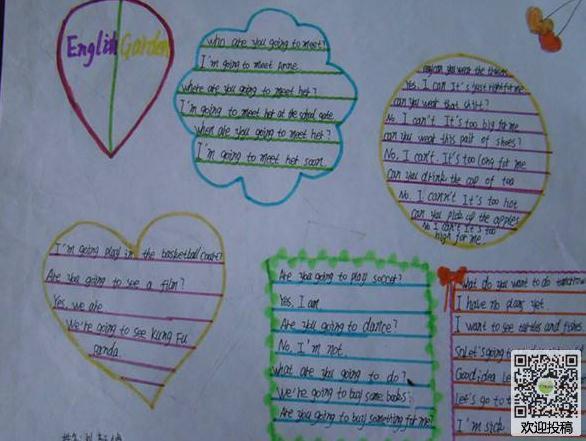 English Garden
who are you going to meet?
I'm going to meet Anne
where are you going to meet her?
I'm going to meet her at the school gate
when are you going to meet her?
I'm going to meet her soon
can you wear the
Yes. I can It's just right for me
can you wear that shirt?
No I can't. It's too big for me
can you wear this pair of shoes?
No. I can't. It's too long for me
can you drink the cup of tea
No. I cann't It's too hot
can you pick up the apples
No I can't It's too
high for me
I'm going play in the basketball court?
Are you going to see a film?
Yes, we are
We're going to see kung Fu
panda.
Are you going to play soccer?
Yes, I am
Are you going to dance?
No, I'm not.
what are you going to do?
We're going to buy some books.
Are you going to buy something for me?
What do you want to do tomorrow
I have no plans yet.
I want to see turtles and fishes.
So Let's going
Good idea Le
Let's go to t
I'm sick
欢迎投稿